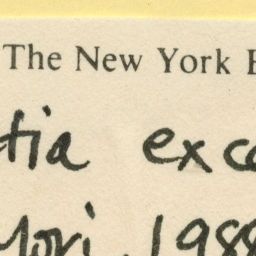 The New York
tia exce
Mori, 1988